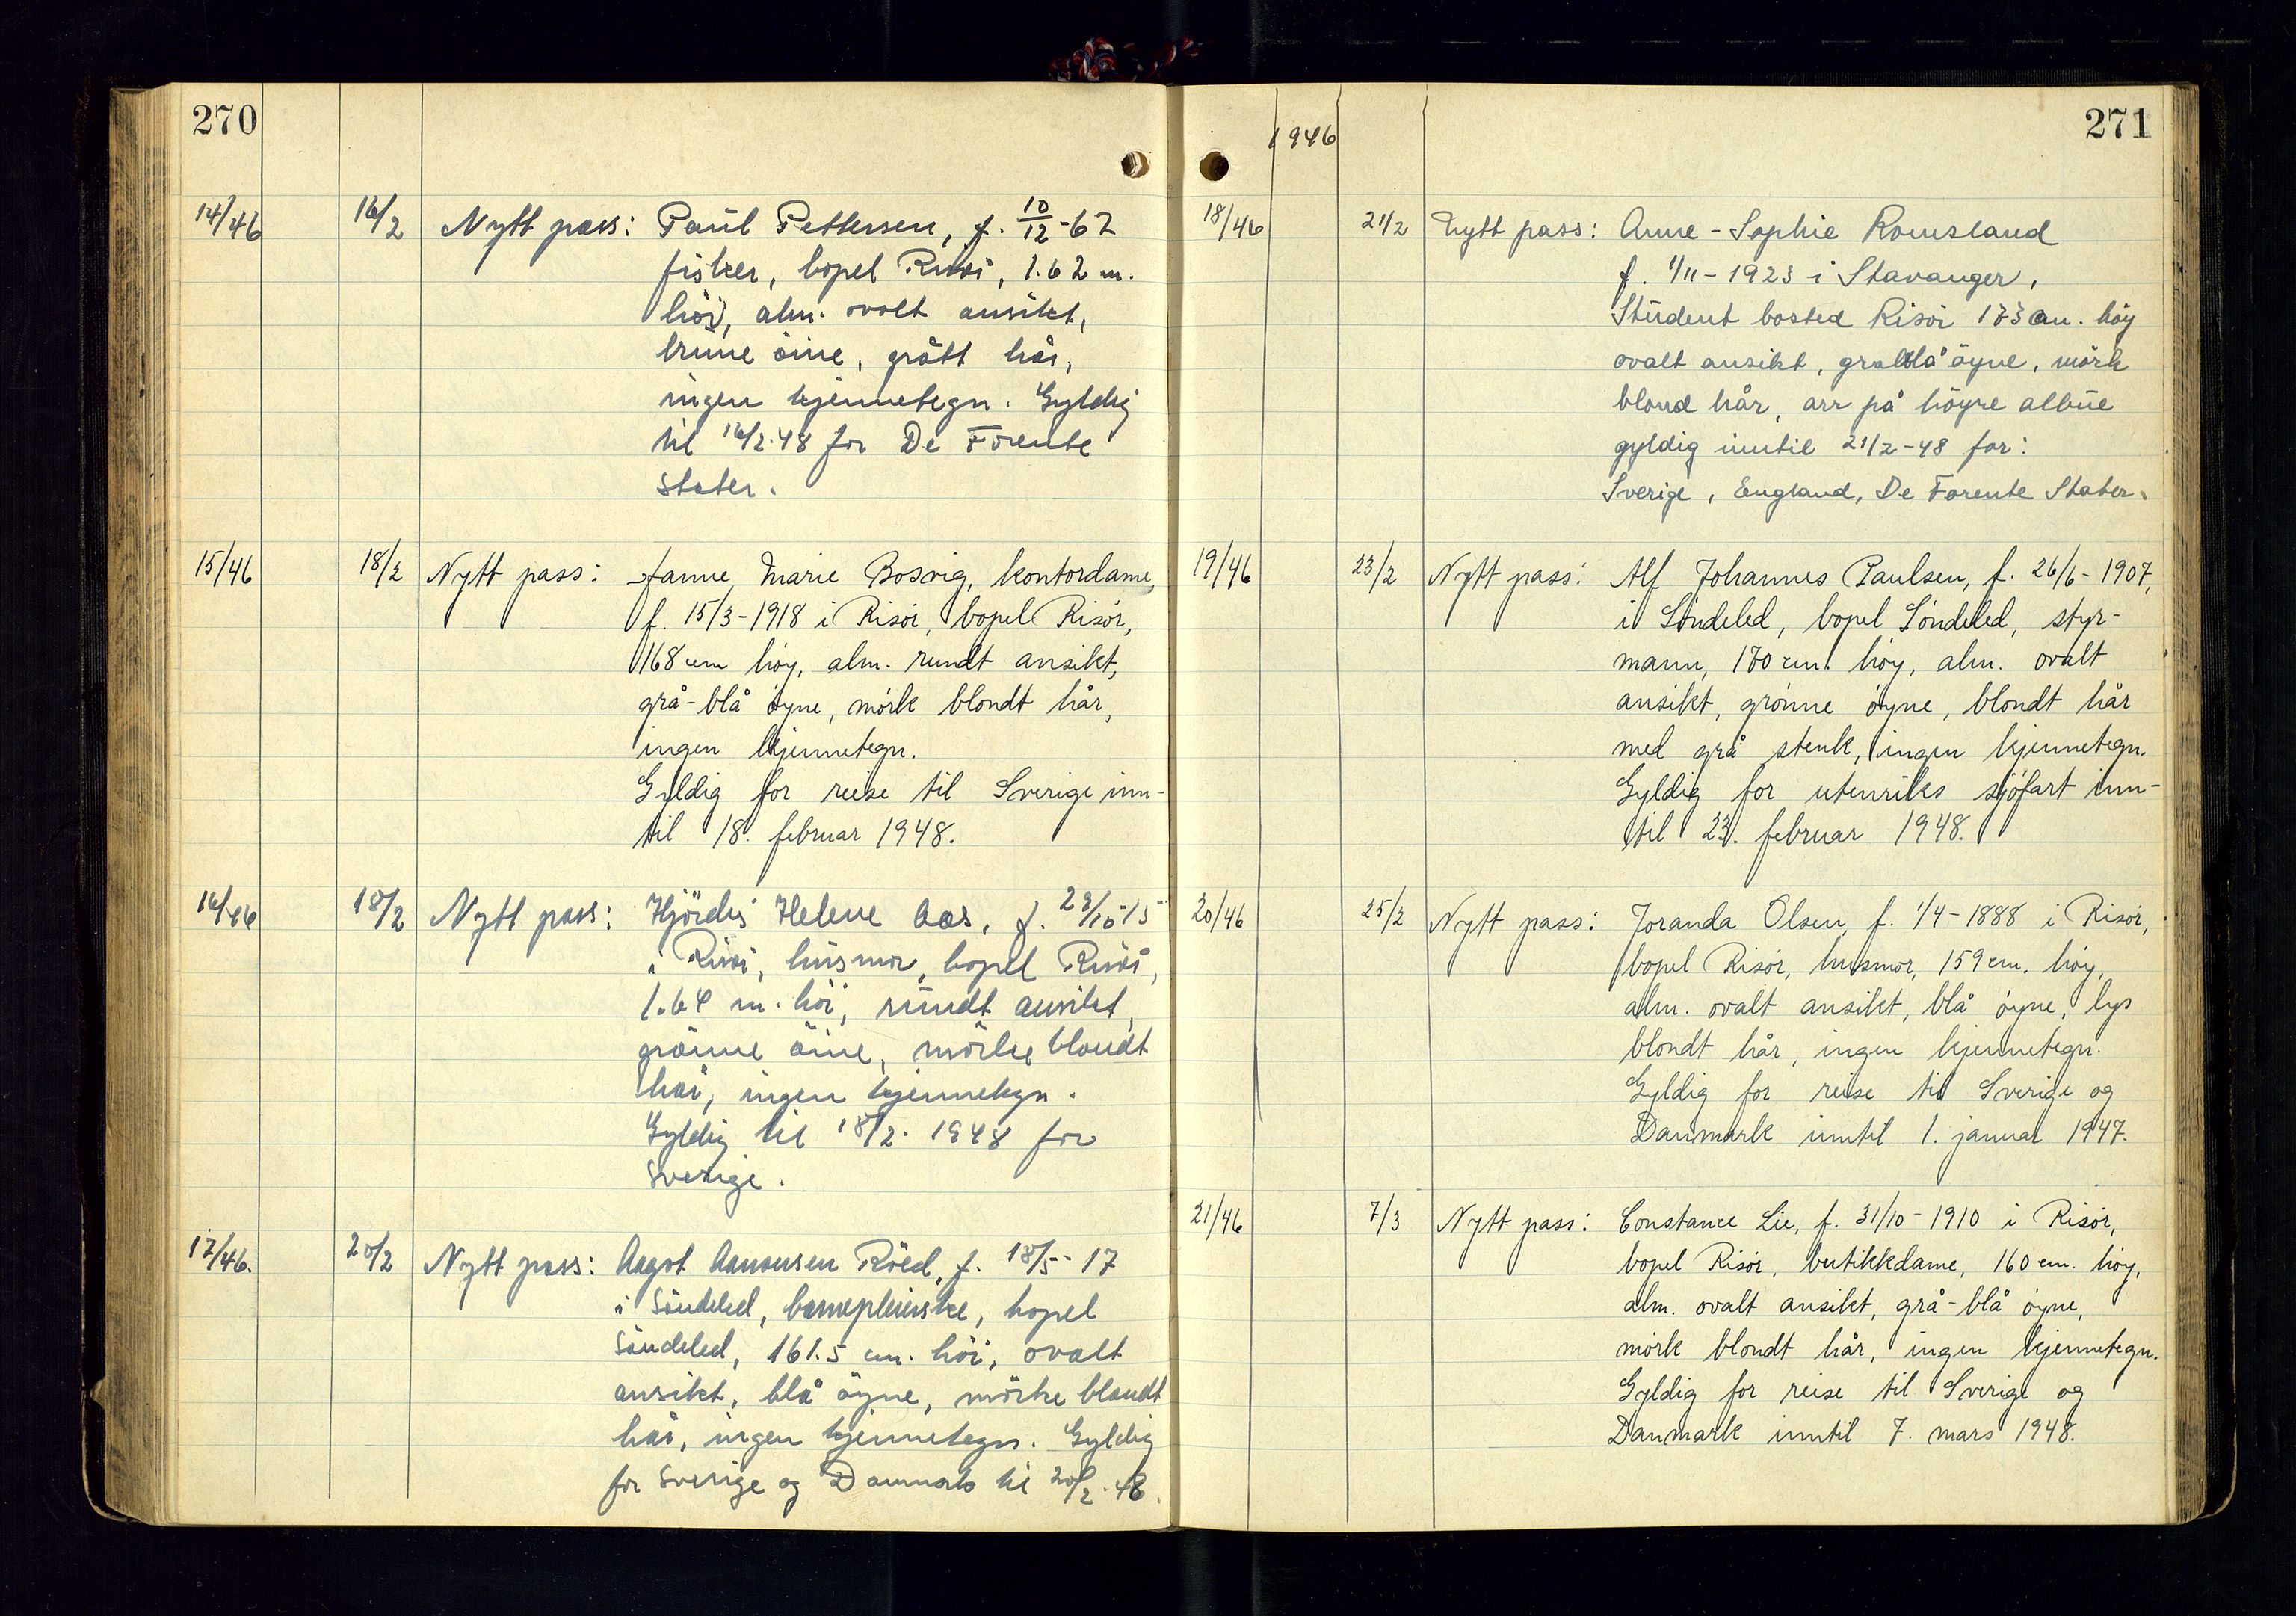 270
14/46 16/2 Nytt pass: Paul Pettersen, f. 10/12-67
fisker, bopel Risör, 1.62 m.
höi, alm. ovalt ansikt,
brune öine, grått hår,
ingen kjennetegn. Gyldig
til 16/2.48 for De Forente
Stater.
15/46 18/2 Nytt pass: Janne Marie Bosvig, kontordame,
f. 15/3-1918 i Risör, bopel Risör,
168 cm höy, alm. rundt ansikt,
grå-blå öyne, mörk blondt hår,
ingen kjennetegn.
Gyldig for reise til Sverige inn-
til 18. februar 1948.
16/46 18/2 Nytt pass: Hjördis Helene Aas, f. /10-15
i Risör, husmor, bopel Risör,
1.64 m. höi, rundt ansikt,
grönne öine, mörke blondt
hår, ingen kjennetegn.
Gyldig til 18/2. 1948 for
Sverige.
17/46. 20/2 Nytt pass: Aagot Aanonsen Röed, f. 18/5-17
i Söndeled, barnepleierske, bopel
Söndeled, 161.5 cm. höi, ovalt
ansikt, blå öyne, mörke blondt
hår, ingen kjennetegn. Gyldig
for Sverige og Danmark til 20/2.48.
1946
271
18/46 21/2 Nytt pass: Anne-Sophie Romsland
f. 1/11-1923 i Stavanger,
Student bosted Risör 173 cm. höy
ovalt ansikt, gråblå öyne, mörk
blond hår, arr på höyre albue
gyldig inntil 21/2-48 for:
Sverige, England, De Forente Stater.
19/46 23/2 Nytt pass: Alf Johannes Paulsen, f. 26/6-1907,
i Söndeled, bopel Söndeled, styr-
mann, 170 cm. höy, alm. ovalt
ansikt, grönne öyne, blondt hår
med grå stenk, ingen kjennetegn.
Gyldig for utenriks sjöfart inn-
til 23. februar 1948.
20/46 25/2 Nytt pass: Joranda Olsen, f. 1/4-1888 i Risör,
bopel Risör, husmor, 159 cm. höy,
alm. ovalt ansikt, blå öyne, lys
blondt hår, ingen kjennetegn.
Gyldig for reise til Sverige og
Danmark inntil 1. januar 1947.
21/46 7/3 Nytt pass: Constance Lie, f. 31/10-1910 i Risör,
bopel Risör, butikkdame, 160 cm. höy,
alm. ovalt ansikt, grå-blå öyne,
mörk blondt hår, ingen kjennetegn.
Gyldig for reise til Sverige og
Danmark inntil 7. mars 1948.